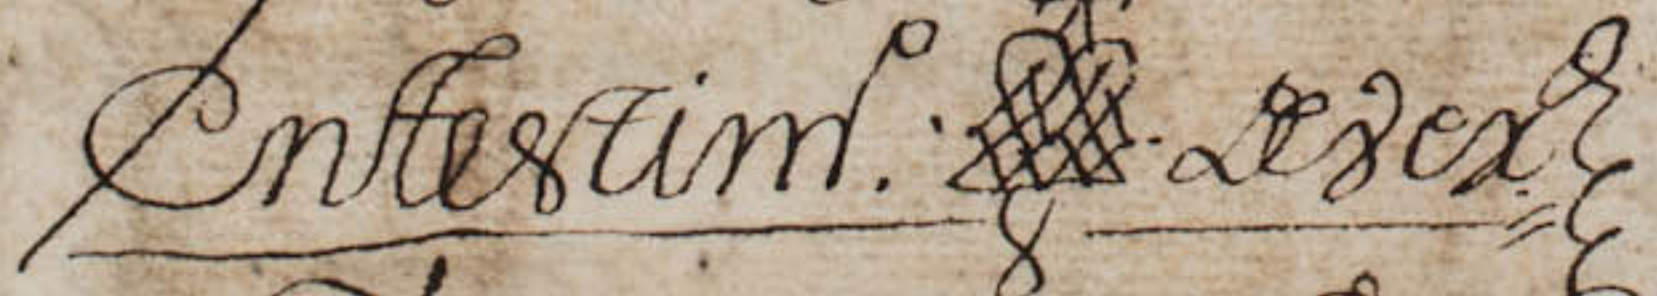 En testimº. de verd